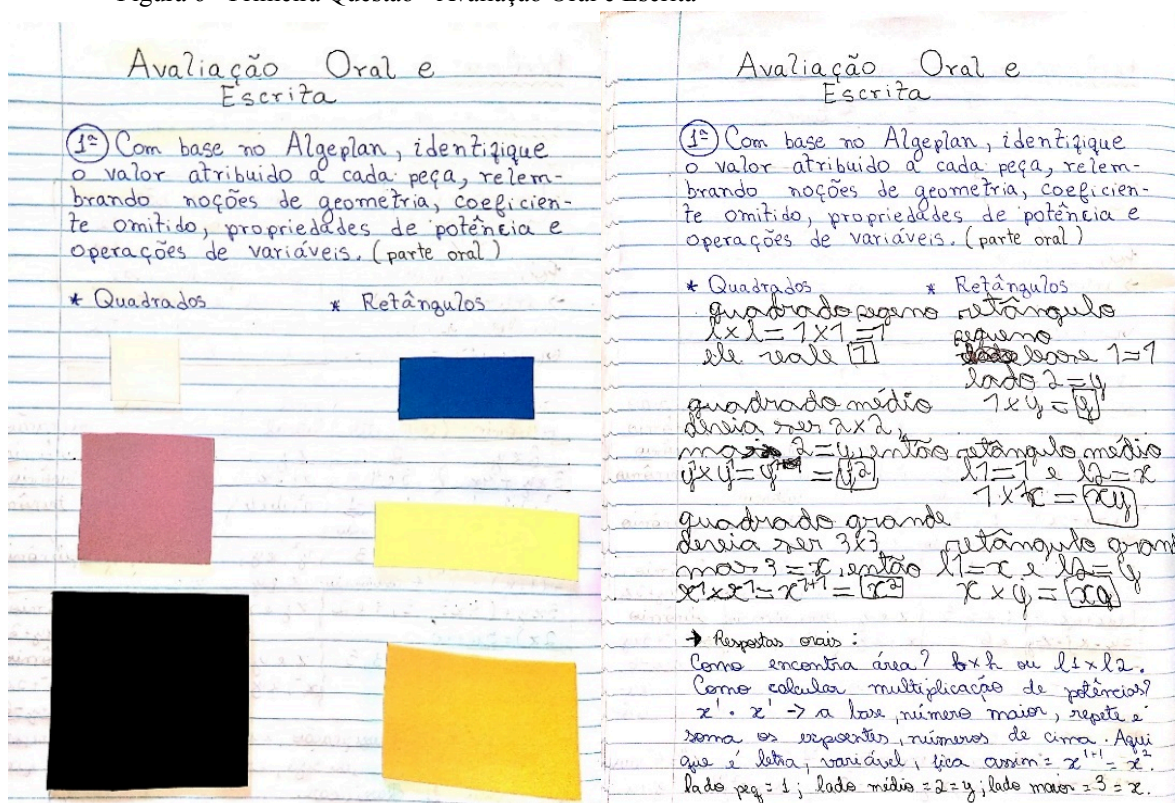 Primeira Questão - Avaliação Oral e Escrita
Avaliação Oral e
Escrita
1ª) Com base no Algeplan, identifique
o valor atribuido a cada peça, relem-
brando noções de geometria, coeficien-
te omitido, propriedades de potência e
operações de variáveis. (parte oral)
* Quadrados
* Retângulos
Avaliação Oral e
Escrita
1ª) Com base no Algeplan, identifique
o valor atribuido a cada peça, relem-
brando noções de geometria, coeficien-
te omitido, propriedades de potência e
operações de variáveis. (parte oral)
* Quadrados
quadrado pegeno
l x l = 1 x 1 = 1
ele vale 1
quadrado médio
deveia ser 2x2,
mas 2=y, então
= y²
quadrado grande
deveia ser 3x3
mas 3=x, então
x¹ x x¹ = x¹⁺¹ = x²
* Retângulos
retângulo
pequeno
base 1=1
lado 2=y
1 x y = y
retângulo médio
l1=1 e l2=x
1 x x = xy
retângulo grand
l1=x e l2=y
x x y = xy
→ Respostas orais:
Como encontra área? b x h ou l1 x l2.
Como calcular multiplicação de potências?
x¹ . x¹ -> a base, número maior, repete e
soma os expoentes, números de cima. Aqui
que é letra, variável, fica assim = x¹⁺¹ = x².
lado peq = 1; lado médio = 2 = y; lado maior = 3 = x.